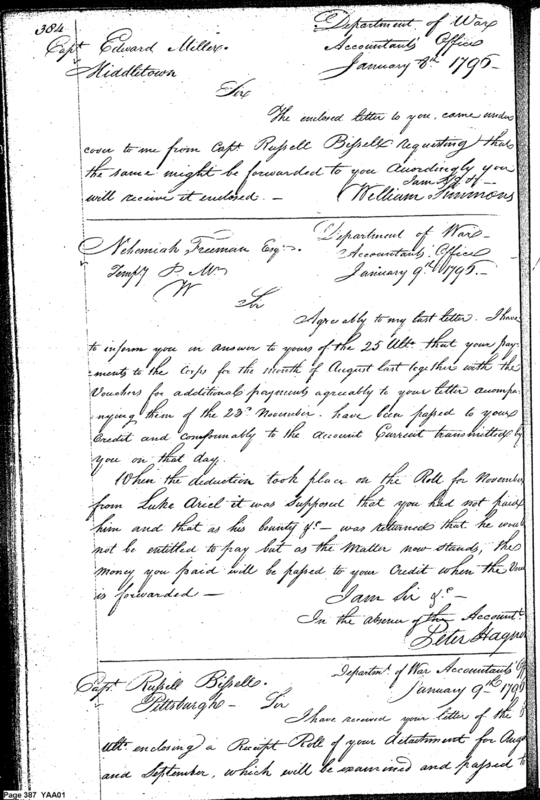 384
Department of War
Capt. Edward Miller.
Accountants Office
Middletown
January 8th 1796-
Sir
The enclosed letter to you, came under
cover to me from Capt Russell Bissell requesting that
the same might be forwarded to you Accordingly you
will receive it enclosed. -
I am Sir &c -
William Simmons
Department of War -
Nehemiah Freeman Esqr.
Accountants Office
Tempy P. Mr
January 9th 1796. -
W
Sir
Agreeably to my last letter. I have
to inform you in answer to yours of the 25 Ulto. that your pay-
ments to the Corps for the month of August last together with the
Vouchers for additional payments agreeably to your letter accompa-
nying them of the 23d November. have been passed to your
Credit and conformably to the account Current transmitted by
you on that day.
When the deduction took place on the Roll for November
from Luke Ariel it was supposed that you had not paid
him and that as his bounty &c - was returned that he would
not be entitled to pay but as the Matter now stands, the
money you paid will be passed to your Credit when the
is forwarded -
I am Sir &c -
In the absence of the Accountt.
Peter Hagner
Departmt. of War Accountants Off
Capt. Russell Bissell.
January 9th 1796
Pittsburgh - Sir
I have received your letter of the
Ulto. enclosing a Receipt Roll of your detachment for Augu
and September, which will be examined and passed to
Page 387 YAA01